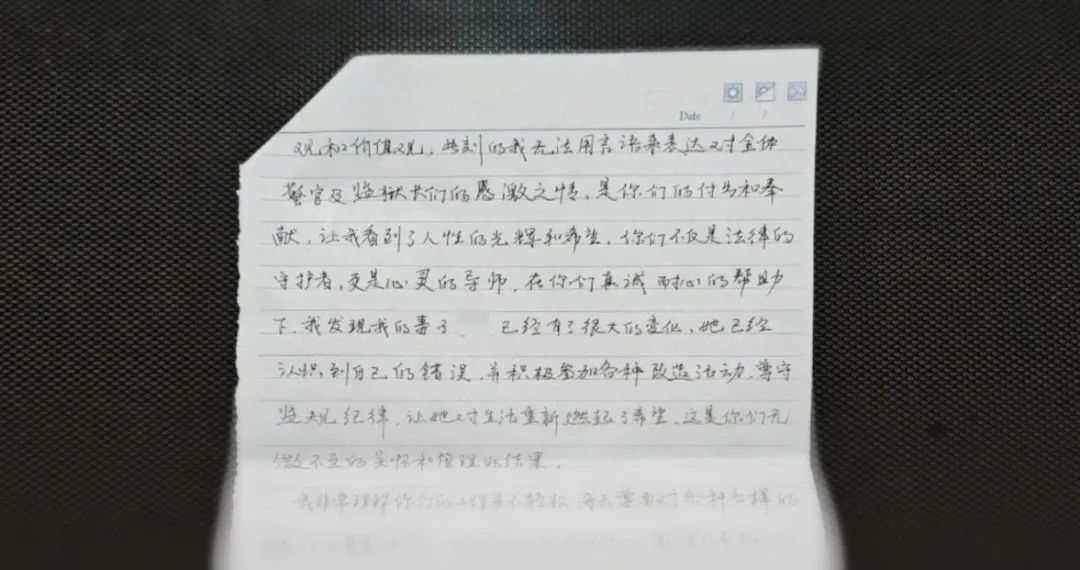 Date / /
观和价值观，此刻的我无法用言语来表达对全体
警官及监狱长们的感激之情，是你们的付出和奉
献，让我看到了人性的光辉和希望，你们不仅是法律的
守护者，更是心灵的导师，在你们真诚耐心的帮助
下，我发现我的妻子 已经有了很大的变化，她已经
认识到自己的错误，并积极参加各种改造活动，遵守
监规纪律，让她对生活重新燃起了希望，这是你们无
微不至的关怀和管理的结果。
我非常理解你们的工作并不轻松，每天要面对各种各样的